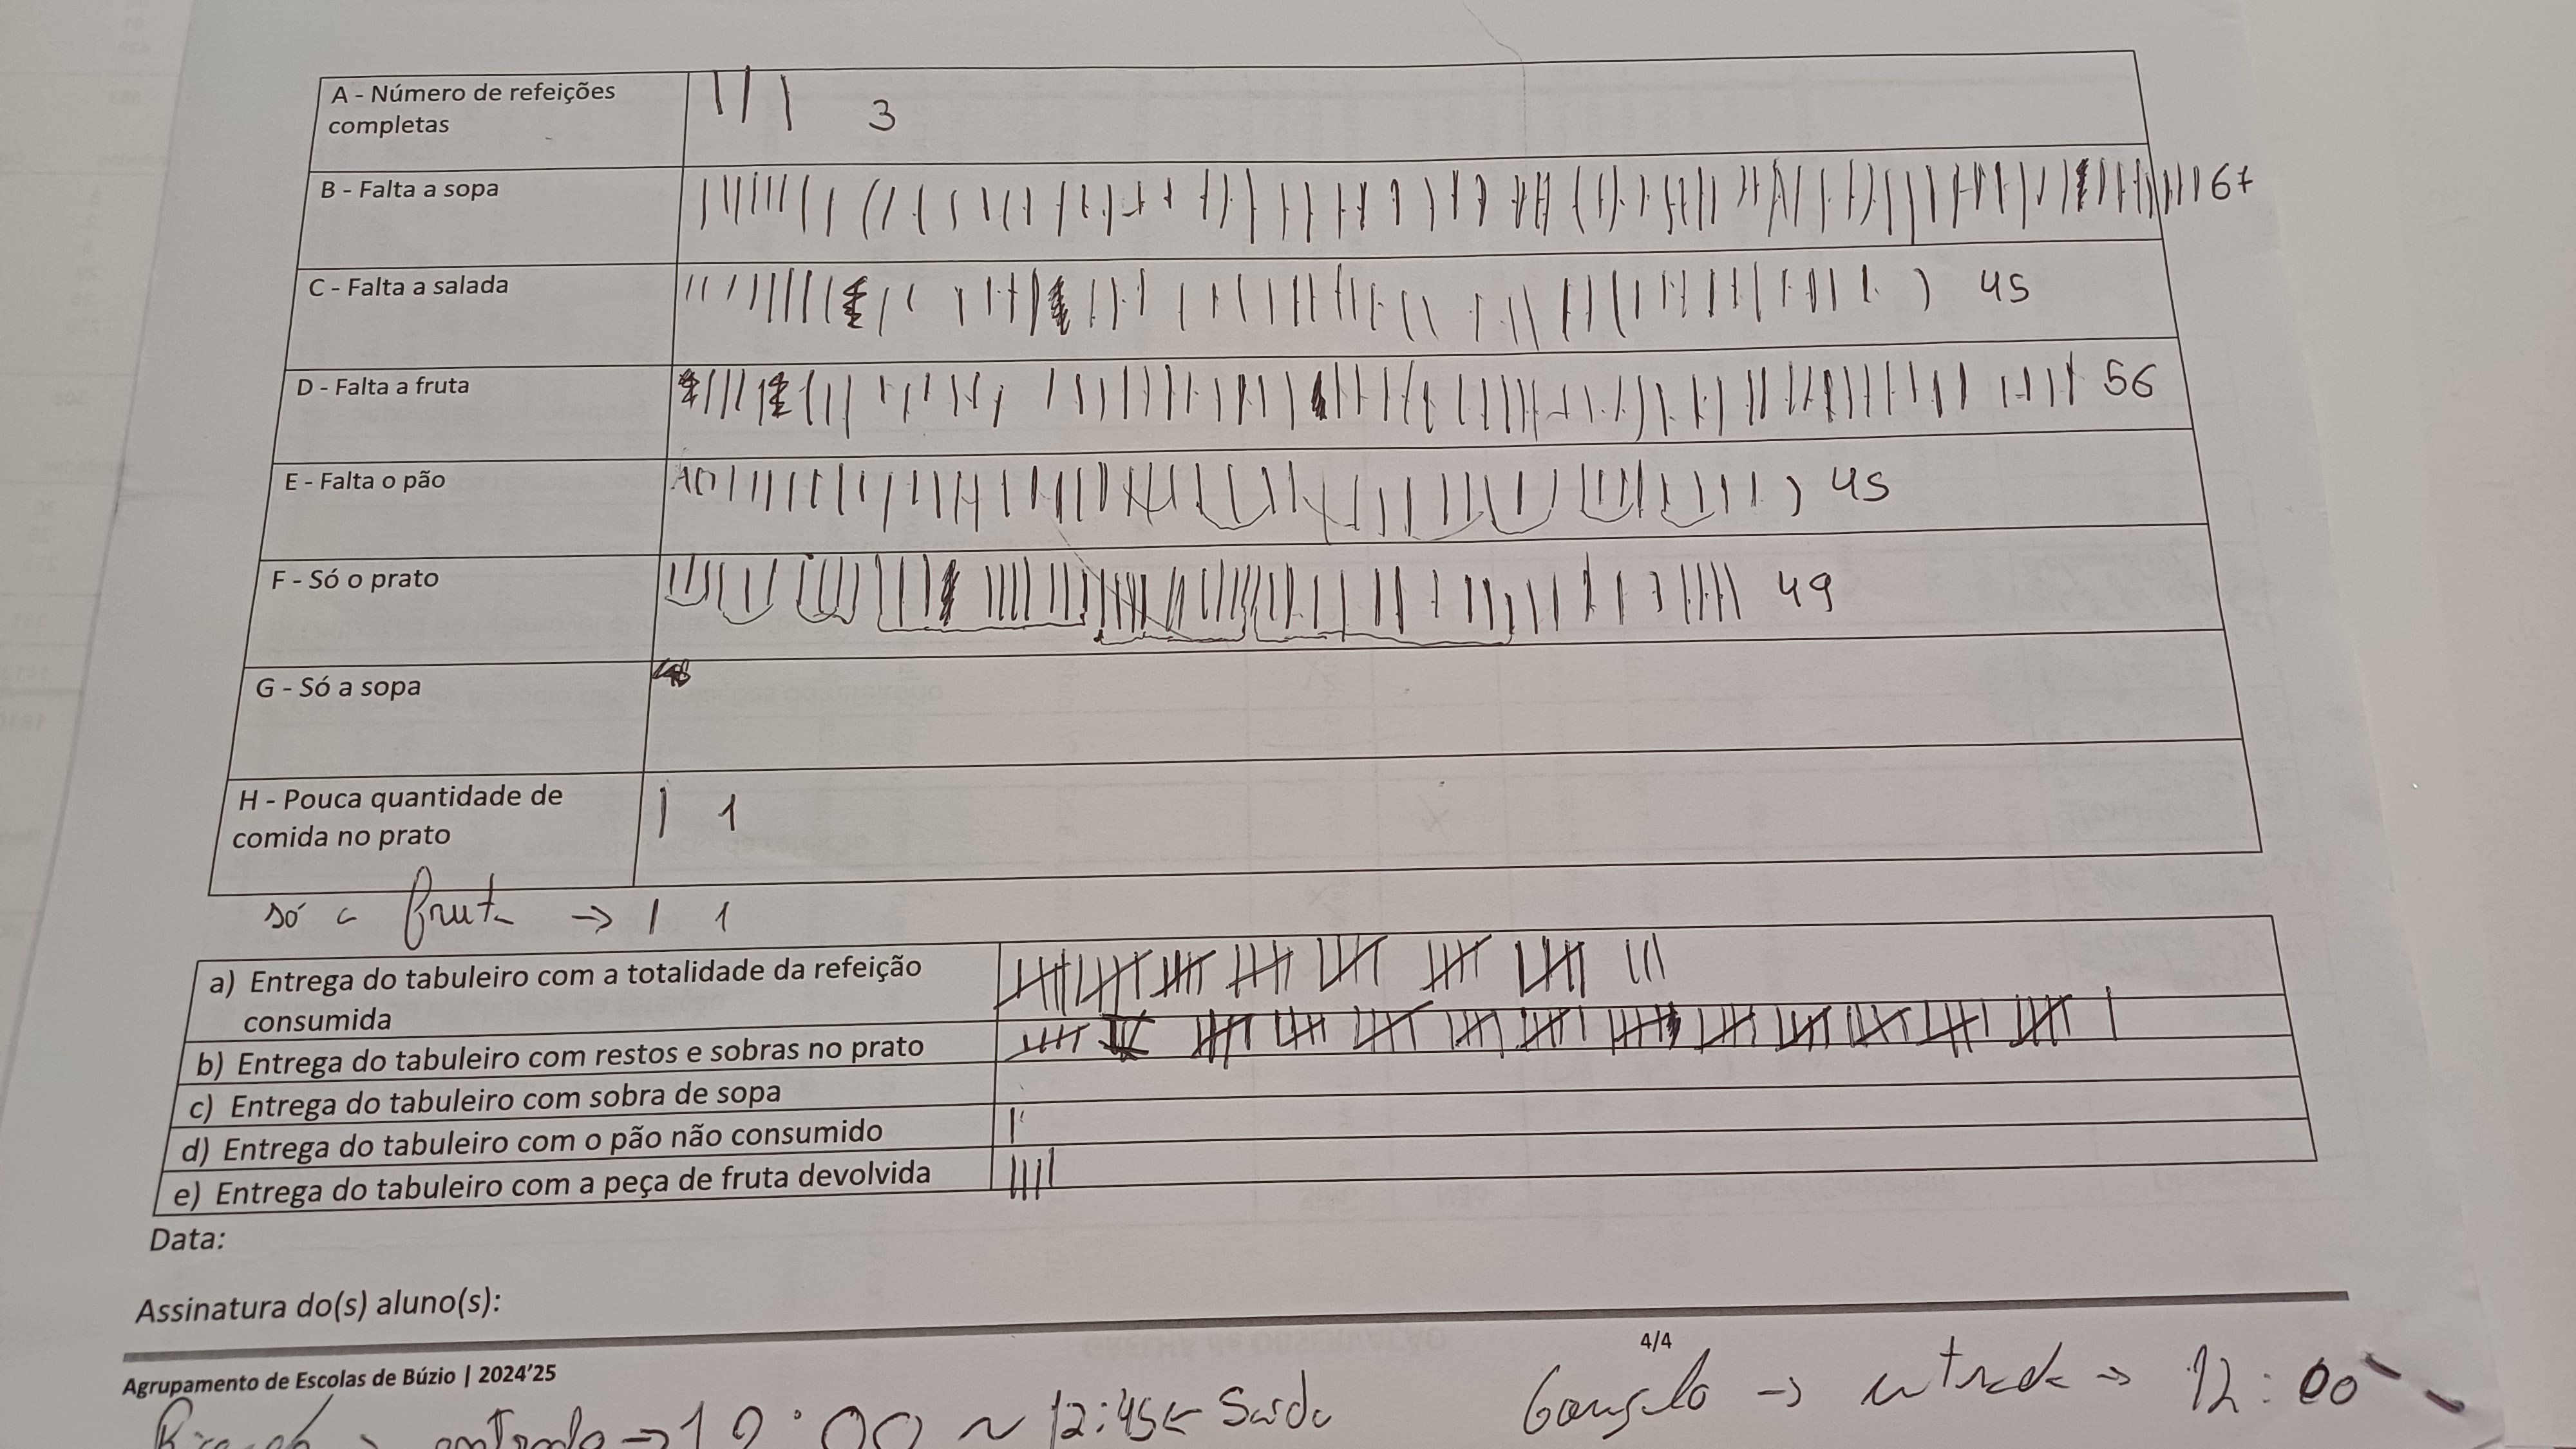 A - Número de refeições
completas 3
B - Falta a sopa 67
C - Falta a salada 45
D - Falta a fruta 56
E - Falta o pão 45
F - Só o prato 49
G - Só a sopa
H - Pouca quantidade de
comida no prato 1
só a fruta → 1
a) Entrega do tabuleiro com a totalidade da refeição
consumida
b) Entrega do tabuleiro com restos e sobras no prato
c) Entrega do tabuleiro com sobra de sopa
d) Entrega do tabuleiro com o pão não consumido
e) Entrega do tabuleiro com a peça de fruta devolvida
Data:
Assinatura do(s) aluno(s):
4/4
Agrupamento de Escolas de Búzio | 2024'25
Gonçalo → entrada → 12:00
entrada → 12:00 ~ 12:45 ← Saída